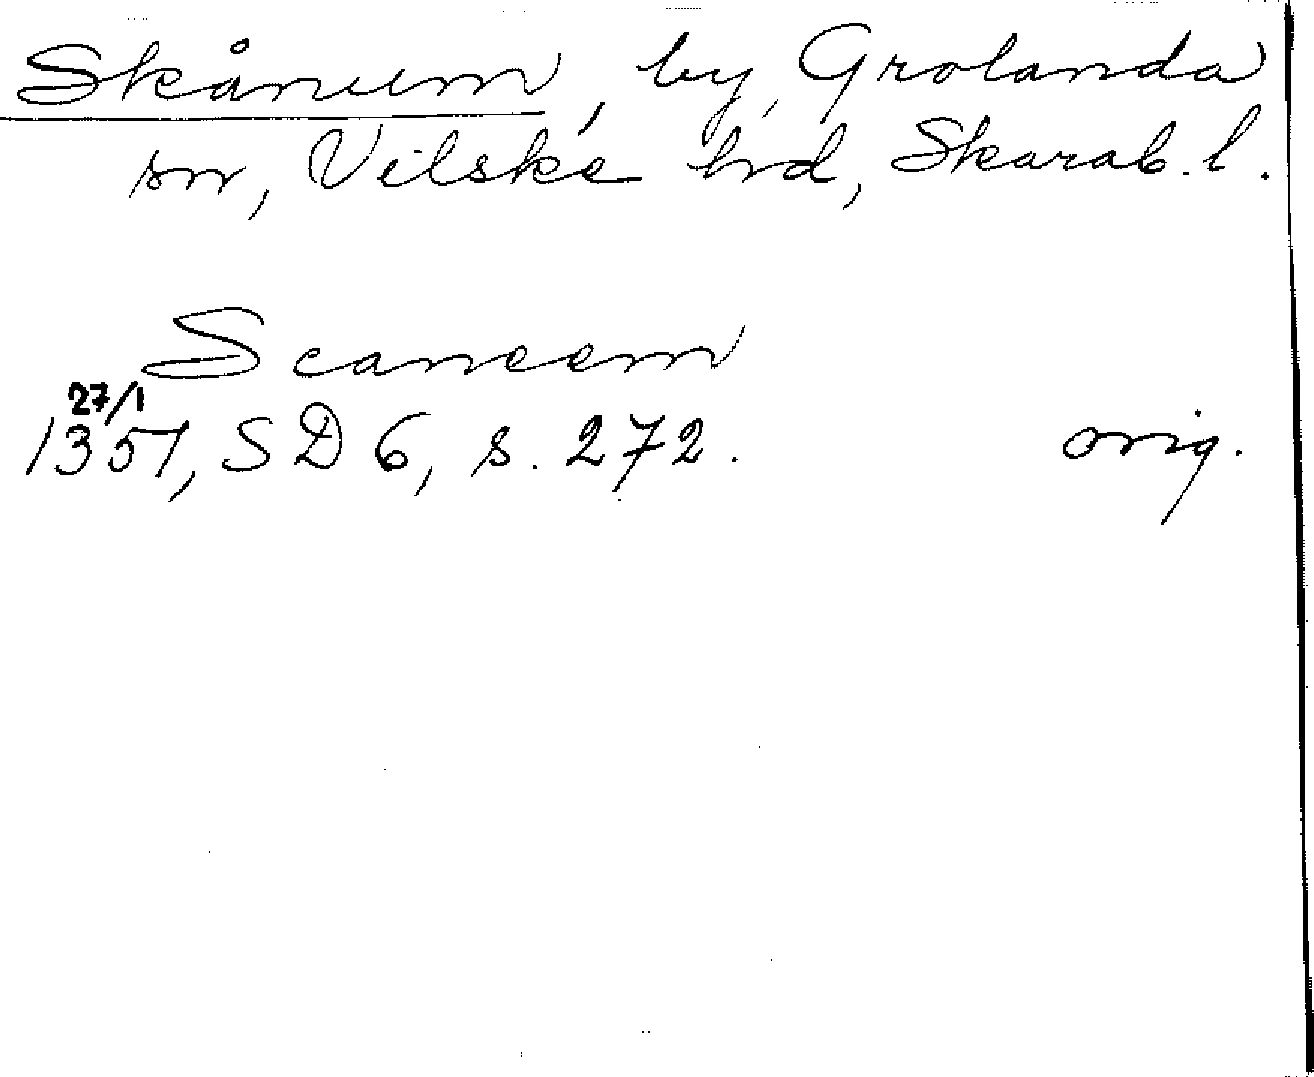 Skånum, by, Grolanda
sn, Vilske hrd, Skarab. l.
Scaneem
27/1
1351, SD 6, s. 272. orig.